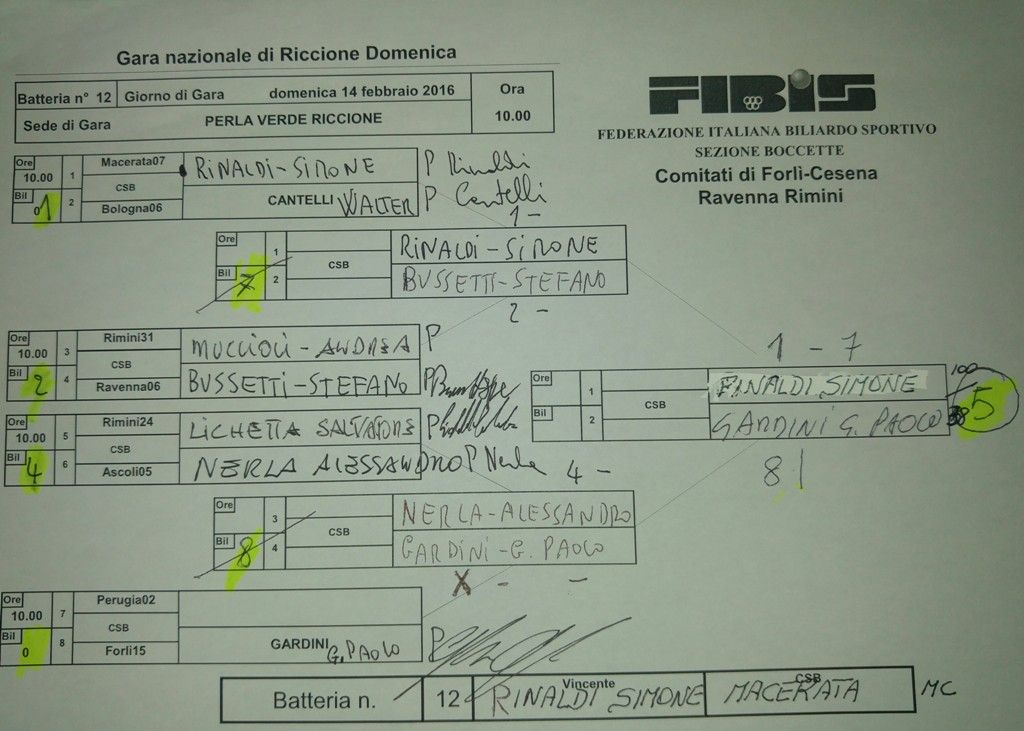 Gara nazionale di Riccione Domenica
Batteria n° 12 Giorno di Gara domenica 14 febbraio 2016 Ora
Sede di Gara PERLA VERDE RICCIONE 10.00
FIBIS
FEDERAZIONE ITALIANA BILIARDO SPORTIVO
SEZIONE BOCCETTE
Comitati di Forlì-Cesena
Ravenna Rimini
Ore 10.00 1 Macerata07 RINALDI-SIMONE P Rinaldi
CSB
Bil 1 2 Bologna06 CANTELLI WALTER P Cantelli
1 -
Ore 1 RINALDI-SIMONE
CSB
Bil 7 2 BUSSETTI-STEFANO
2 -
Ore 10.00 3 Rimini31 MUCCIOLI-ANDREA P
CSB
Bil 2 4 Ravenna06 BUSSETTI-STEFANO P
1 - 7
Ore 1 RINALDI SIMONE 100
CSB
Bil 2 GARDINI G. PAOLO 5
8
Ore 10.00 5 Rimini24 LICHETTA SALVATORE P
CSB
Bil 4 6 Ascoli05 NERLA ALESSANDRO P Nerla
4 -
Ore 3 NERLA-ALESSANDRO
CSB
Bil 8 4 GARDINI-G. PAOLO
X - -
Ore 10.00 7 Perugia02
CSB
Bil 0 8 Forlì15 GARDINI G. PAOLO P
Batteria n. 12 Vincente RINALDI SIMONE CSB MACERATA MC